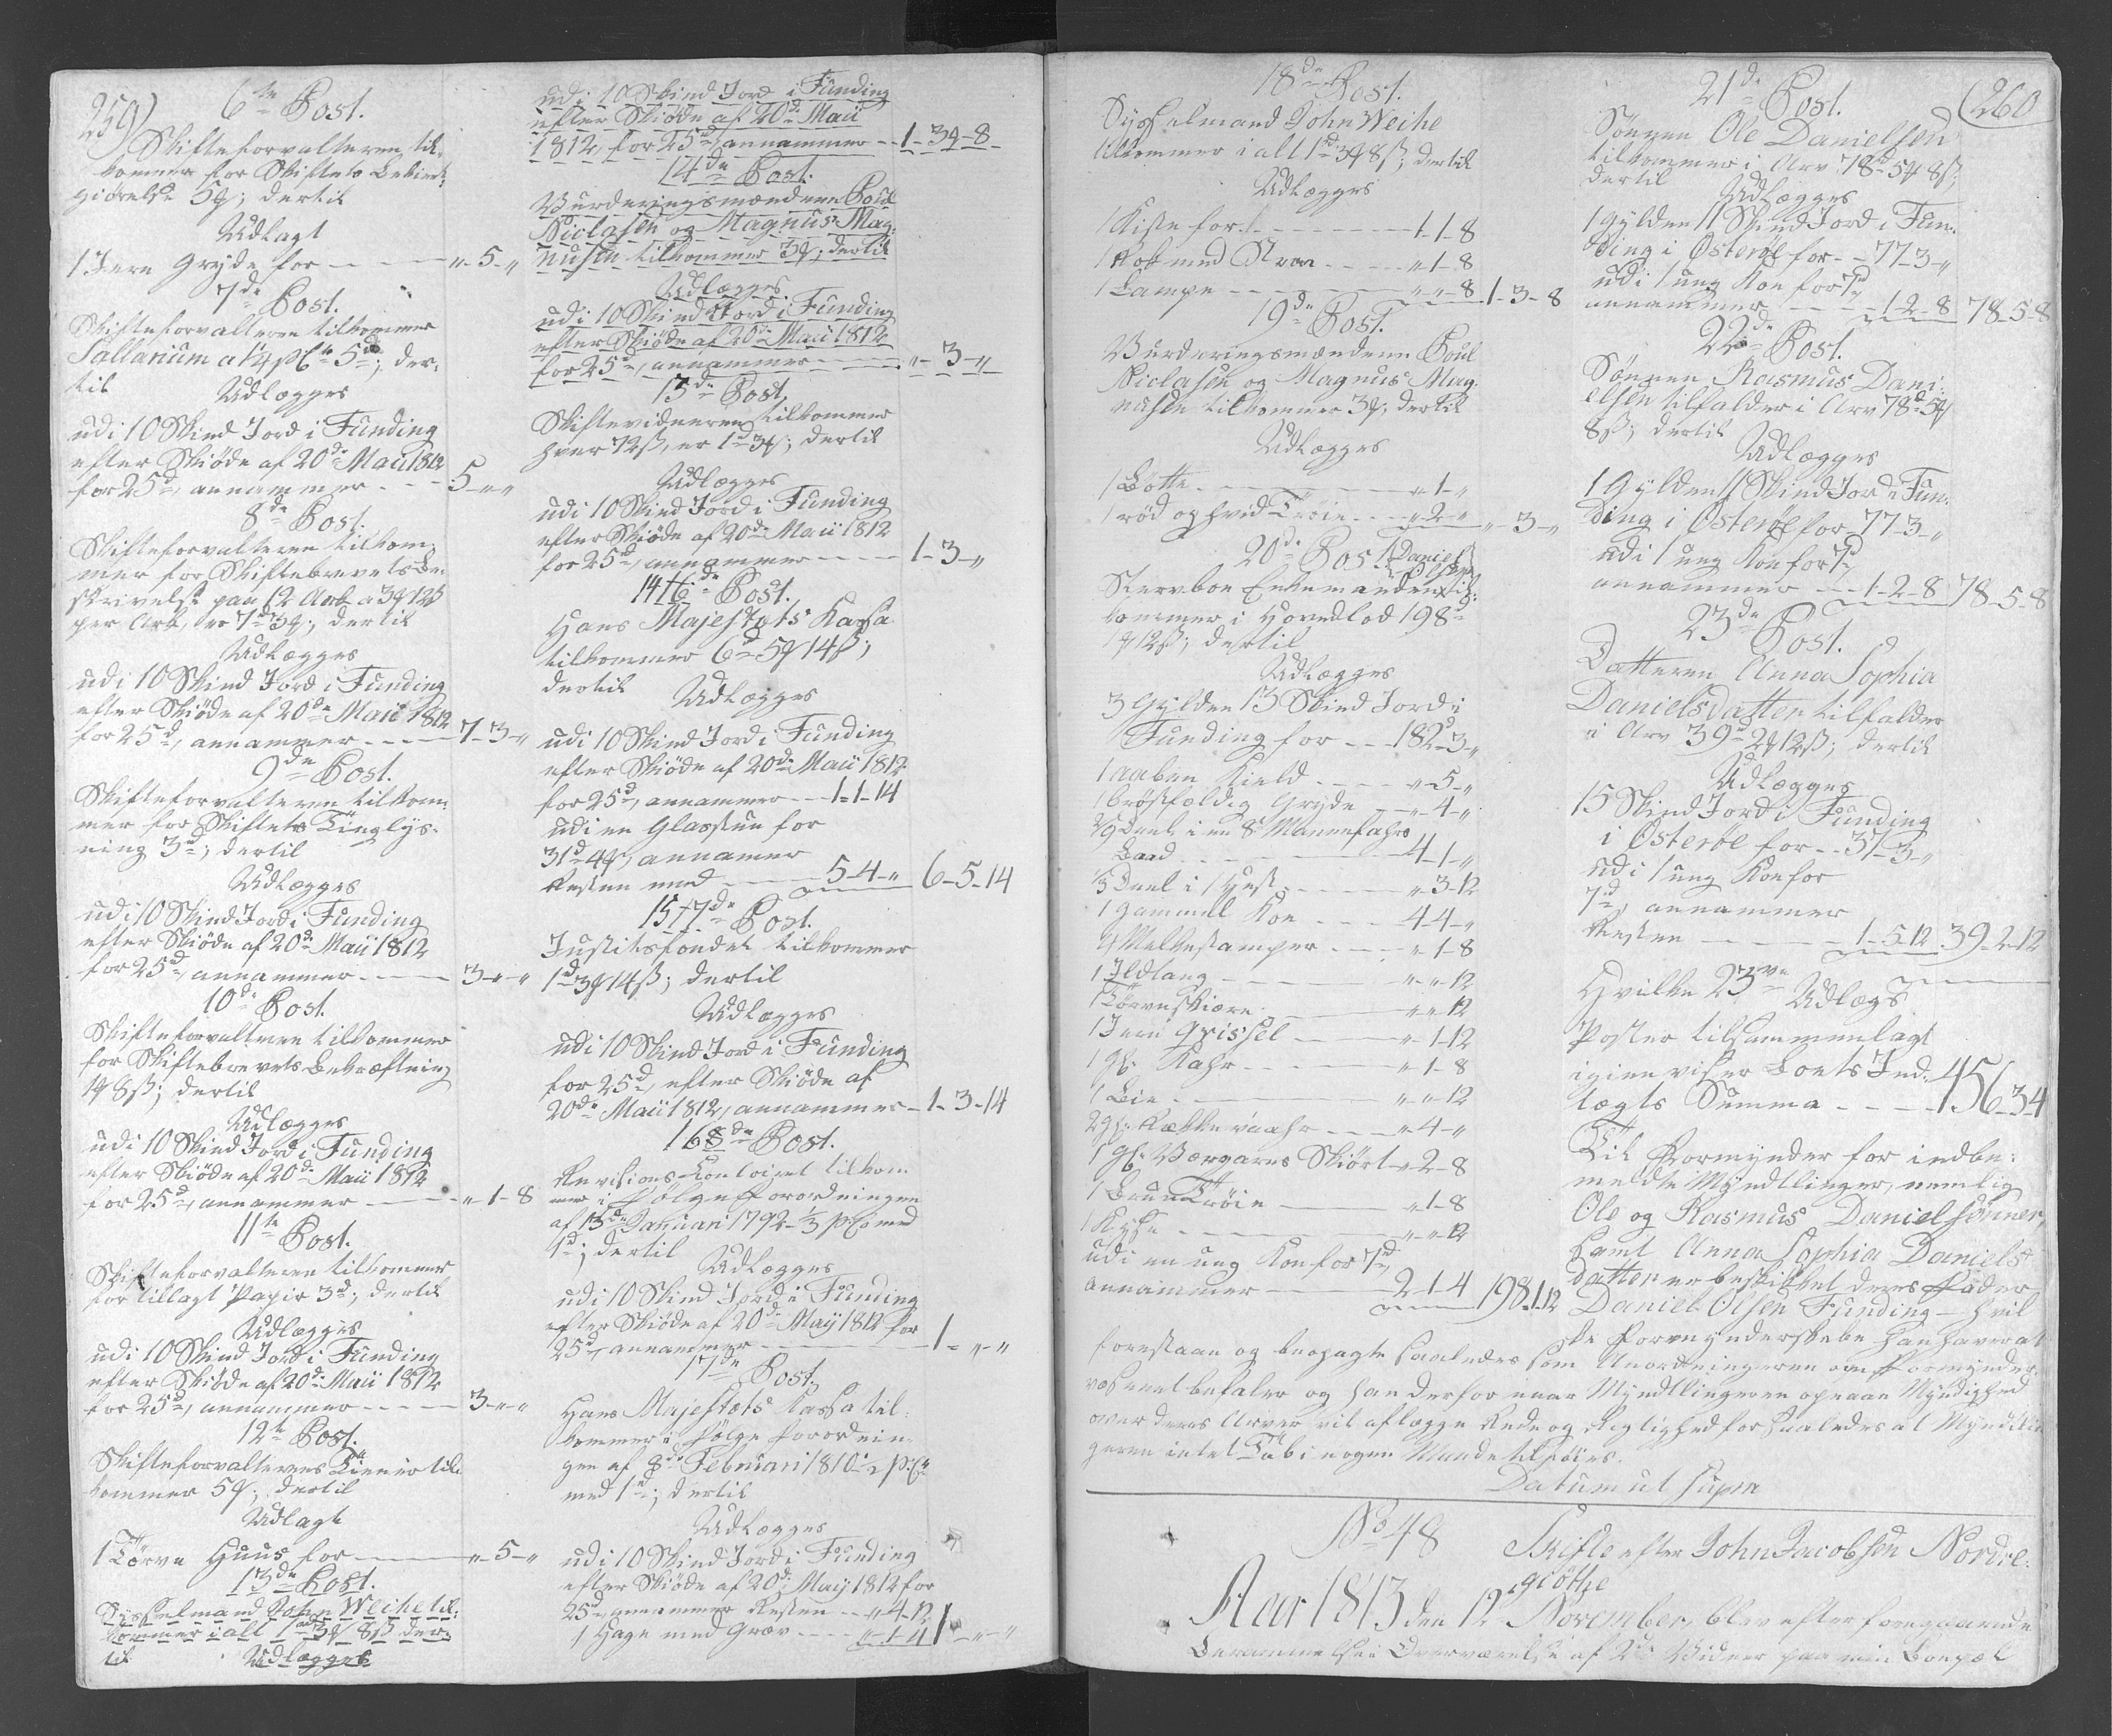 259)
6te Post.
Skifteforvalteren til-
kommer for Skiftets Bekiendt-
giørelse 5ϥ; dertil
Udlagt
1 Jern Gryde for - - - „-5-„
7de Post.
Skifteforvalteren tilkommer
Sallarium a 1¼ pCto 5d; der-
til Udlægges
udi 10 Skind Jord i Funding
efter Skiøde af 20de Maii 1812
for 25d, annammer - - - 5-„-„
8de Post.
Skifteforvalteren tilkom-
mer for Skiftebrevets Be-
skrivelse paa 12 Ark a 3ϥ 12ß
per Ark, er 7d 3ϥ; dertil
Udlægges
udi 10 Skind Jord i Funding
efter Skiøde af 20de Maii 1812
for 25d, annammer - - - 7-3-„
9de Post.
Skifteforvalteren tilkom-
mer for Skiftets Tinglys-
ning 3d; dertil
Udlægges
udi 10 Skind Jord i Funding
efter Skiøde af 20de Maii 1812
for 25d, annammer - - - 3-„-„
10de Post.
Skifteforvalteren tilkommer
for Skiftebrevets Bekræftning
1ϥ 8ß; dertil
Udlægges
udi 10 Skind Jord i Funding
efter Skiøde af 20de Maii 1812
for 25d, annammer - - - „-1-8
11te Post.
Skifteforvalteren tilkommer
for tillagt Papir 3d; dertil
Udlægges
udi 10 Skind Jord i Funding
efter Skiøde af 20de Maii 1812
for 25d, annammer - - - 3-„-„
12te Post.
Skifteforvalterens Tienere til-
kommer 5ϥ; dertil
Udlagt
1 Törve Huus for - - - „-5-„
13de Post.
Sysselmand John Weihe til-
kommer i alt 1d 3ϥ 8ß der-
til Udlægges
udi 10 Skind Jord i Funding
efter Skiøde af 20de Maii
1812, for 25d, annammer - - 1-3ϥ-8
14de Post.
Vurderingsmændene Poul
Niclasen og Magnus Mag-
nusen tilkommer 3ϥ; dertil
Udlægges
udi 10 Skind Jord i Funding
efter Skiøde af 20de Maii 1812
for 25d, annammer - - - „-3-„
13de Post.
Skiftevidnerne tilkommer
hver 72ß, er 1d 3ϥ; dertil
Udlægges
udi 10 Skind Jord i Funding
efter Skiøde af 20de Maii 1812
for 25d, annammer - - - 1-3-„
14 16de Post.
Hans Majestæts Kassa
tilkommer 6d 5ϥ 14ß;
dertil Udlægges
udi 10 Skind Jord i Funding
efter Skiøde af 20de Maii 1812
for 25d, annammer - - 1-1-14
udi en Glasstue for
31d 4ϥ, annamer
Resten med - - - 5-4-„ 6-5-14
15 17de Post.
Justitsfondet tilkommer
1d 3ϥ 14ß; dertil
Udlægges
udi 10 Skind Jord i Funding
for 25d, efter Skiøde af
20de Maii 1812, annammer - 1-3-14
16 8de Post.
Revisions-Contoiret tilkom-
mer i Følge Forordningen
af 13de Januari 1792 ⅓ pCo med
1d; dertil
Udlægges
udi 10 Skind Jord i Funding
efter Skiøde af 20de Maij 1812 for
25d, annammer - - - 1-„-„
17de Post.
Hans Majestæts Kassa til-
kommer i Følge Forordnin-
gen af 8de Februari 1810 ½ pCto
med 1d; dertil
Udlægges
udi 10 Skind Jord i Funding
efter Skiøde af 20de Maij 1812 for
25d annammer Resten - - „-4-12
1 Hage med Græv - - - „-1-4 1-„-„
18de Post.
Sysselmand John Weihe
tilkommer i alt 1d 3ϥ 8ß; dertil
Udlægges
1 Kiste for - - - 1-1-8
1 Rok med - - - „-1-8
1 Lampe - - - „-„-8 1-3-8
19de Post.
Vurderingsmændene Poul
Niclasen og Magnus Mag-
nusen tilkommer 3ϥ; dertil
Udlægges
1 Botte - - - „-1-„
1 rød og hvid Trøie - - - „-2-„ „-3-„
20de Post.
Stervboe Enkemanden Daniel Olsen til-
kommer i Hovedlod 198d
1ϥ 12ß; dertil
Udlægges
3 Gylden 13 Skind Jord i
Funding for - - 182d-3-„
1 aaben Kield - - - „-5-„
1 brøstfældig Gryde - - „-4-„
Deel i en 8 Mannefahrs
Baad - - - 4-1-„
⅓ Deel i 1 Hest - - - „-3-12
1 gammel Koe - - - 4-4-„
4 Melkestamper - - - „-1-8
1 Ildtang - - - „-„-12
1 Törveskiære - - - „-„-12
1 Jern Grissel - - - „-1-12
1 gl. Kahr - - - „-1-8
1 Lie - - - „-„-12
2 gl. - - - „-4-„
1 gl. Skiört - „-2-8
1 Bruun Trøie - - - „-1-8
1 - - - „-„-12
udi en ung Koe for 7d
annammer - - - 2-1-4 198-1-12
21de Post. (260
Sønnen Ole Danielsen
tilkommer i Arv 78d 5ϥ 8ß,
dertil Udlægges
1 Gylden 11 Skind Jord i Fun-
ding i Østerøe for - - 77-3-„
udi 1 ung Koe for 7d,
annammer - - - 1-2-8 78-5-8
22de Post.
Sønnen Rasmus Dani-
elsen tilfalder i Arv 78d 5ϥ
8ß; dertil
Udlægges
1 Gylden 11 Skind Jord i Fun-
ding i Østerøe for 77-3-„
udi 1 ung Koe for 7d,
annammer - - 1-2-8 78-5-8
23de Post.
Datteren Anna Sophia
Danielsdatter tilfalder
i Arv 39d 2ϥ 12ß; dertil
Udlægges
15 Skind Jord i Funding
i Østerøe for - - 37-3-„
udi 1 ung Koe for
7d, annammer
Resten - - - 1-5-12 39-2-12
Hvilke 23ve Udlægs
Poster tilsammenlagt
igien viser Boets Ind-
tægts Summa - - - 456-3-4
Til Formynder for indbe-
meldte Myndtlinger, nemlig
Ole og Rasmus Danielsønner,
samt Anna Sophia Daniels-
datter er beskikket deres Fader
Daniel Olsen Funding - hvil-
ke Formynderskabe han haver at
forestaae og beobagte saaledes som Anordningerne om Formynder-
væsenet befaler og han derfor naar Myndtlingerne opnaae Myndighed
over deres Arver vil aflægge Rede og Rigtighed for saaledes at Myndtlin-
gerne intet Tab i nogen Maade tilføies.
Datum ut supra
No 48 Skifte efter John Jacobsen Nordre-
giöthe
Aar 1813 den 12 November, blev efter foregaaende
Berammelse i Overværelse af 2de Vidner paa min Boepæl